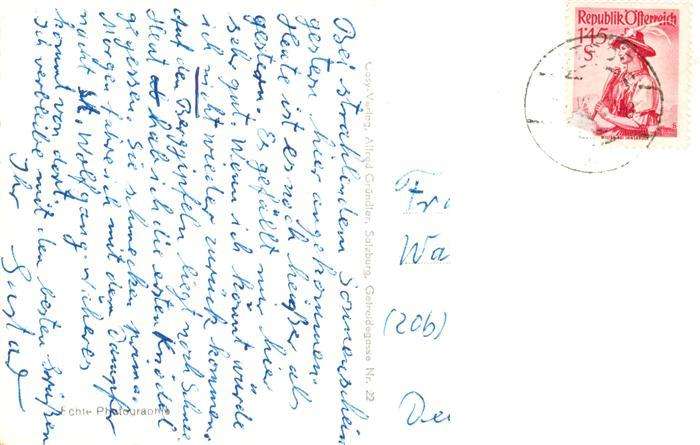 Bei strahlendem Sonnenschein
gestern hier angekommen.
Heute ist es noch heißer als
gestern. Es gefällt mir hier
sehr gut. Wenn ich könnt würde
ich nicht wieder zurück kommen.
Auf den Berggipfeln liegt noch Schnee
Heut hab ich die ersten Knödel
gegessen. Sie schmecken prima.
Morgen fahre ich mit dem Dampfer
nach St. Wolfgang.
kommt von dort.
Ich verbleibe mit den besten Grüßen
Ihr Gustav
Cosy-Verlag, Alfred Gründler, Salzburg, Getreidegasse Nr. 22
Echte Photographie
Republik Österreich
1'45
S
Fr
Wa
(20b)
De